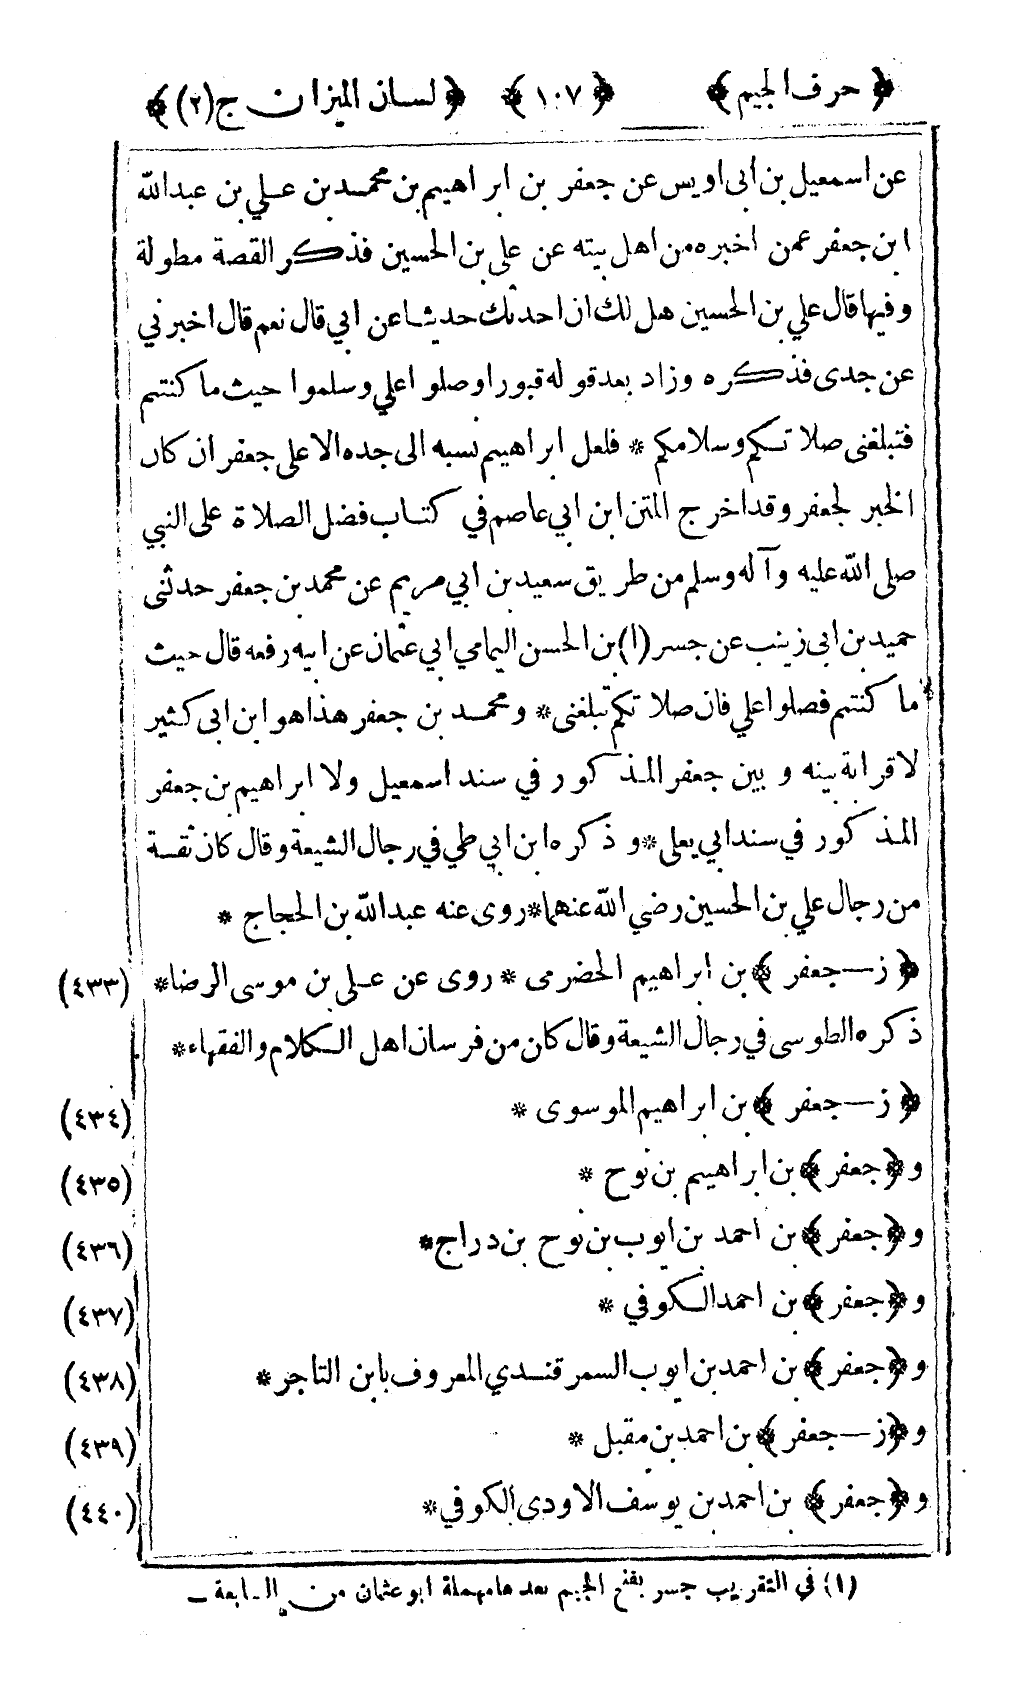 ﴿ حرف الجيم ﴾ ﴿ ١٠٧ ﴾ ﴿ لسان الميزان ج (٢) ﴾
عن اسمعيل بن ابى اويس عن جعفر بن ابراهيم بن محمد بن علي بن عبدالله
ابن جعفر عمن اخبره من اهل بيته عن علي بن الحسين فذكر القصة مطولة
وفيها قال علي بن الحسين هل لك ان احدثك حديثا عن ابي قال نعم قال اخبرني
عن جدى فذكره وزاد بعد قوله قبورا وصلوا علي وسلموا حيث ما كنتم
فتبلغنى صلاتكم وسلامكم * فلعل ابراهيم نسبه الى جده الاعلى جعفر ان كان
الخبر لجعفر وقد اخرج المتن ابن ابي عاصم في كتاب فضل الصلاة على النبي
صلى الله عليه وآله وسلم من طريق سعيد بن ابي مريم عن محمد بن جعفر حدثنى
حميد بن ابى زينب عن جسر (١) بن الحسن اليمامي ابي عثمان عن ابيه رفعه قال حيث
ما كنتم فصلوا علي فان صلاتكم تبلغنى * ومحمد بن جعفر هذا هو ابن ابى كثير
لا قرابة بينه وبين جعفر المذكور في سند اسمعيل ولا ابراهيم بن جعفر
المذكور في سند ابي يعلى * وذكره ابن ابي طي في رجال الشيعة وقال كان ثقة
من رجال علي بن الحسين رضي الله عنهما * روى عنه عبدالله بن الحجاج *
﴿ ز — جعفر ﴾ بن ابراهيم الحضرمى * روى عن علي بن موسى الرضا * (٤٣٣)
ذكره الطوسى في رجال الشيعة وقال كان من فرسان اهل الكلام والفقهاء *
﴿ ز — جعفر ﴾ بن ابراهيم الموسوى * (٤٣٤)
و ﴿ جعفر ﴾ بن ابراهيم بن نوح * (٤٣٥)
و ﴿ جعفر ﴾ بن احمد بن ايوب بن نوح بن دراج * (٤٣٦)
و ﴿ جعفر ﴾ بن احمد الكوفي * (٤٣٧)
و ﴿ جعفر ﴾ بن احمد بن ايوب السمرقندي المعروف بابن التاجر * (٤٣٨)
و ﴿ ز — جعفر ﴾ بن احمد بن مقبل * (٤٣٩)
و ﴿ جعفر ﴾ بن احمد بن يوسف الاودى الكوفي * (٤٤٠)
(١) في التقريب جسر بفتح الجيم بعدها مهملة ابو عثمان من الرابعة —